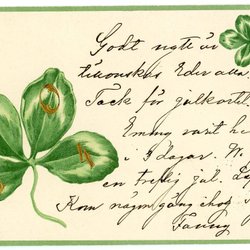 Godt nytt år
tillönskas Eder alla
Tack för julkortet
Emmy vart he
i 3 dagar. W.
en treflig jul. 
Kom någon gång ihog
Fanny